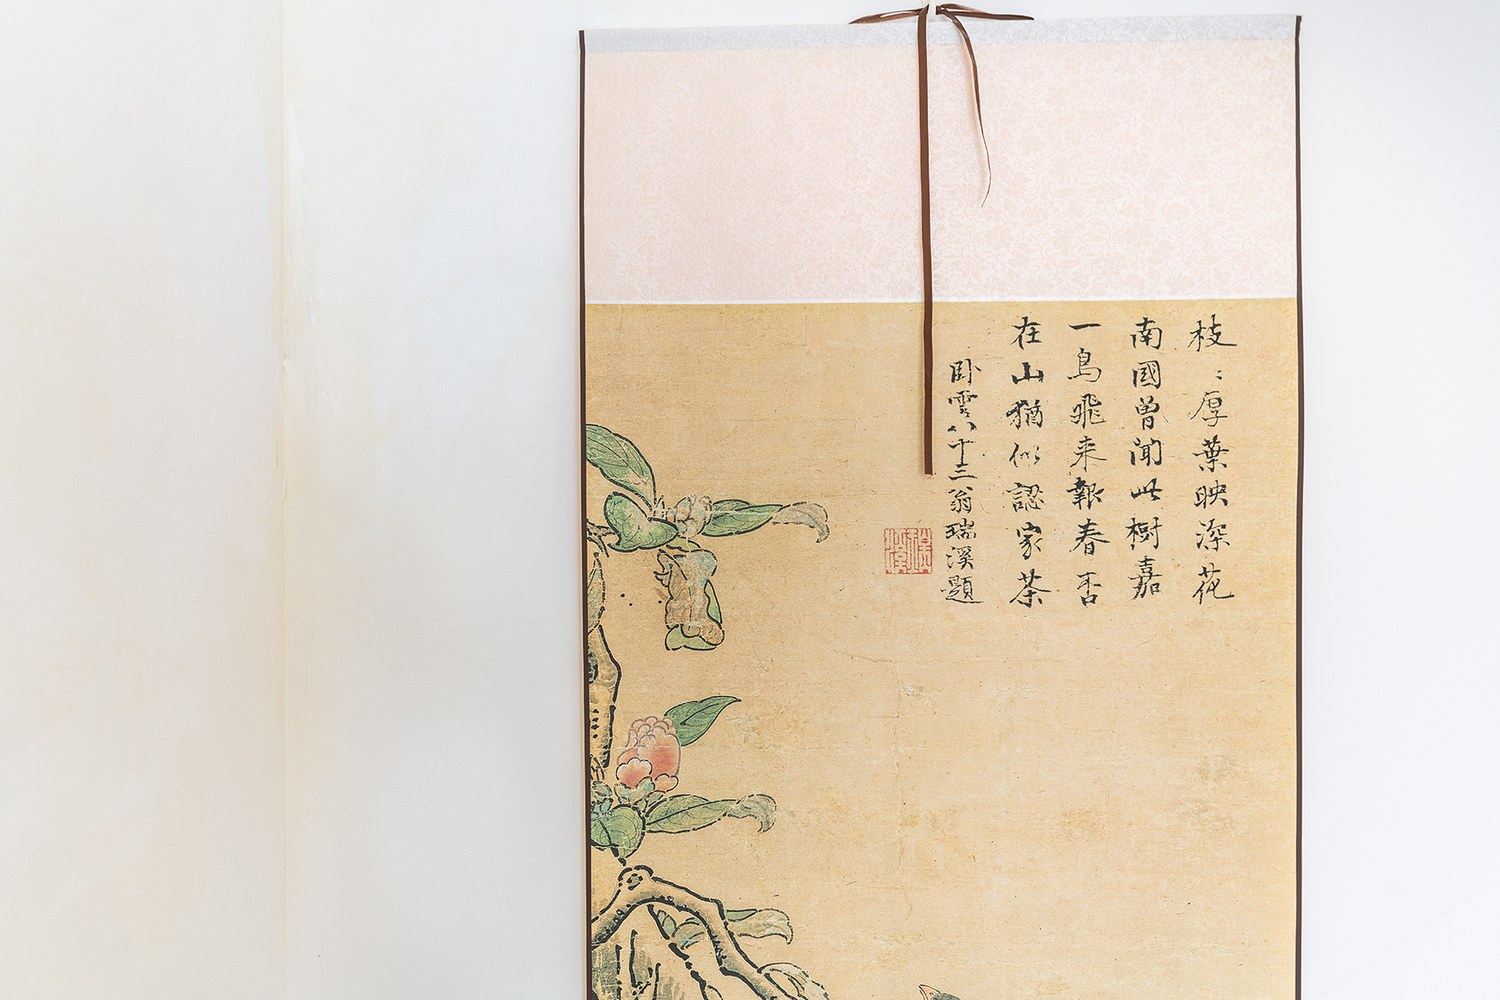 枝〻厚葉映深花
南國曾聞此樹嘉
一鳥飛来報春杏
在山猶似認家茶
卧雲八十三翁瑞溪題